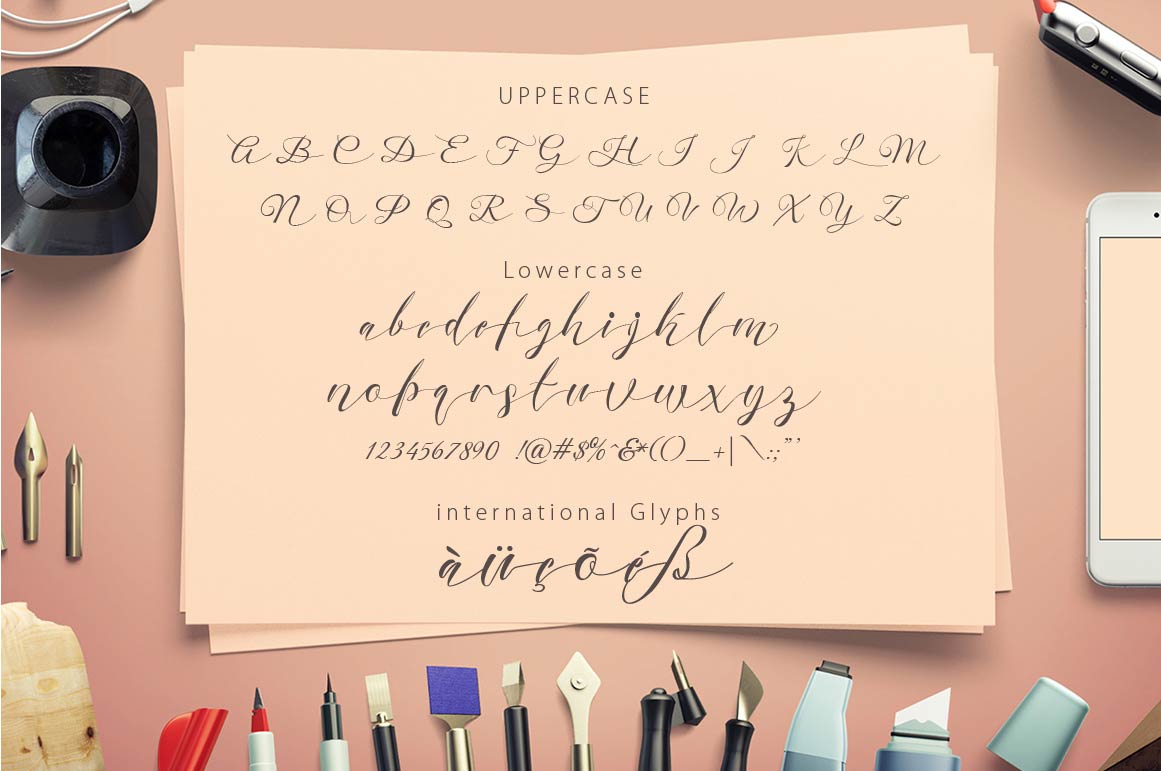 UPPERCASE
A B C D E F G H I J K L M
N O P Q R S T U V W X Y Z
Lowercase
abcdefghijklm
nopqrstuvwxyz
1234567890 !@#$%^&*()_+|\:;"'
international Glyphs
àüçõéß